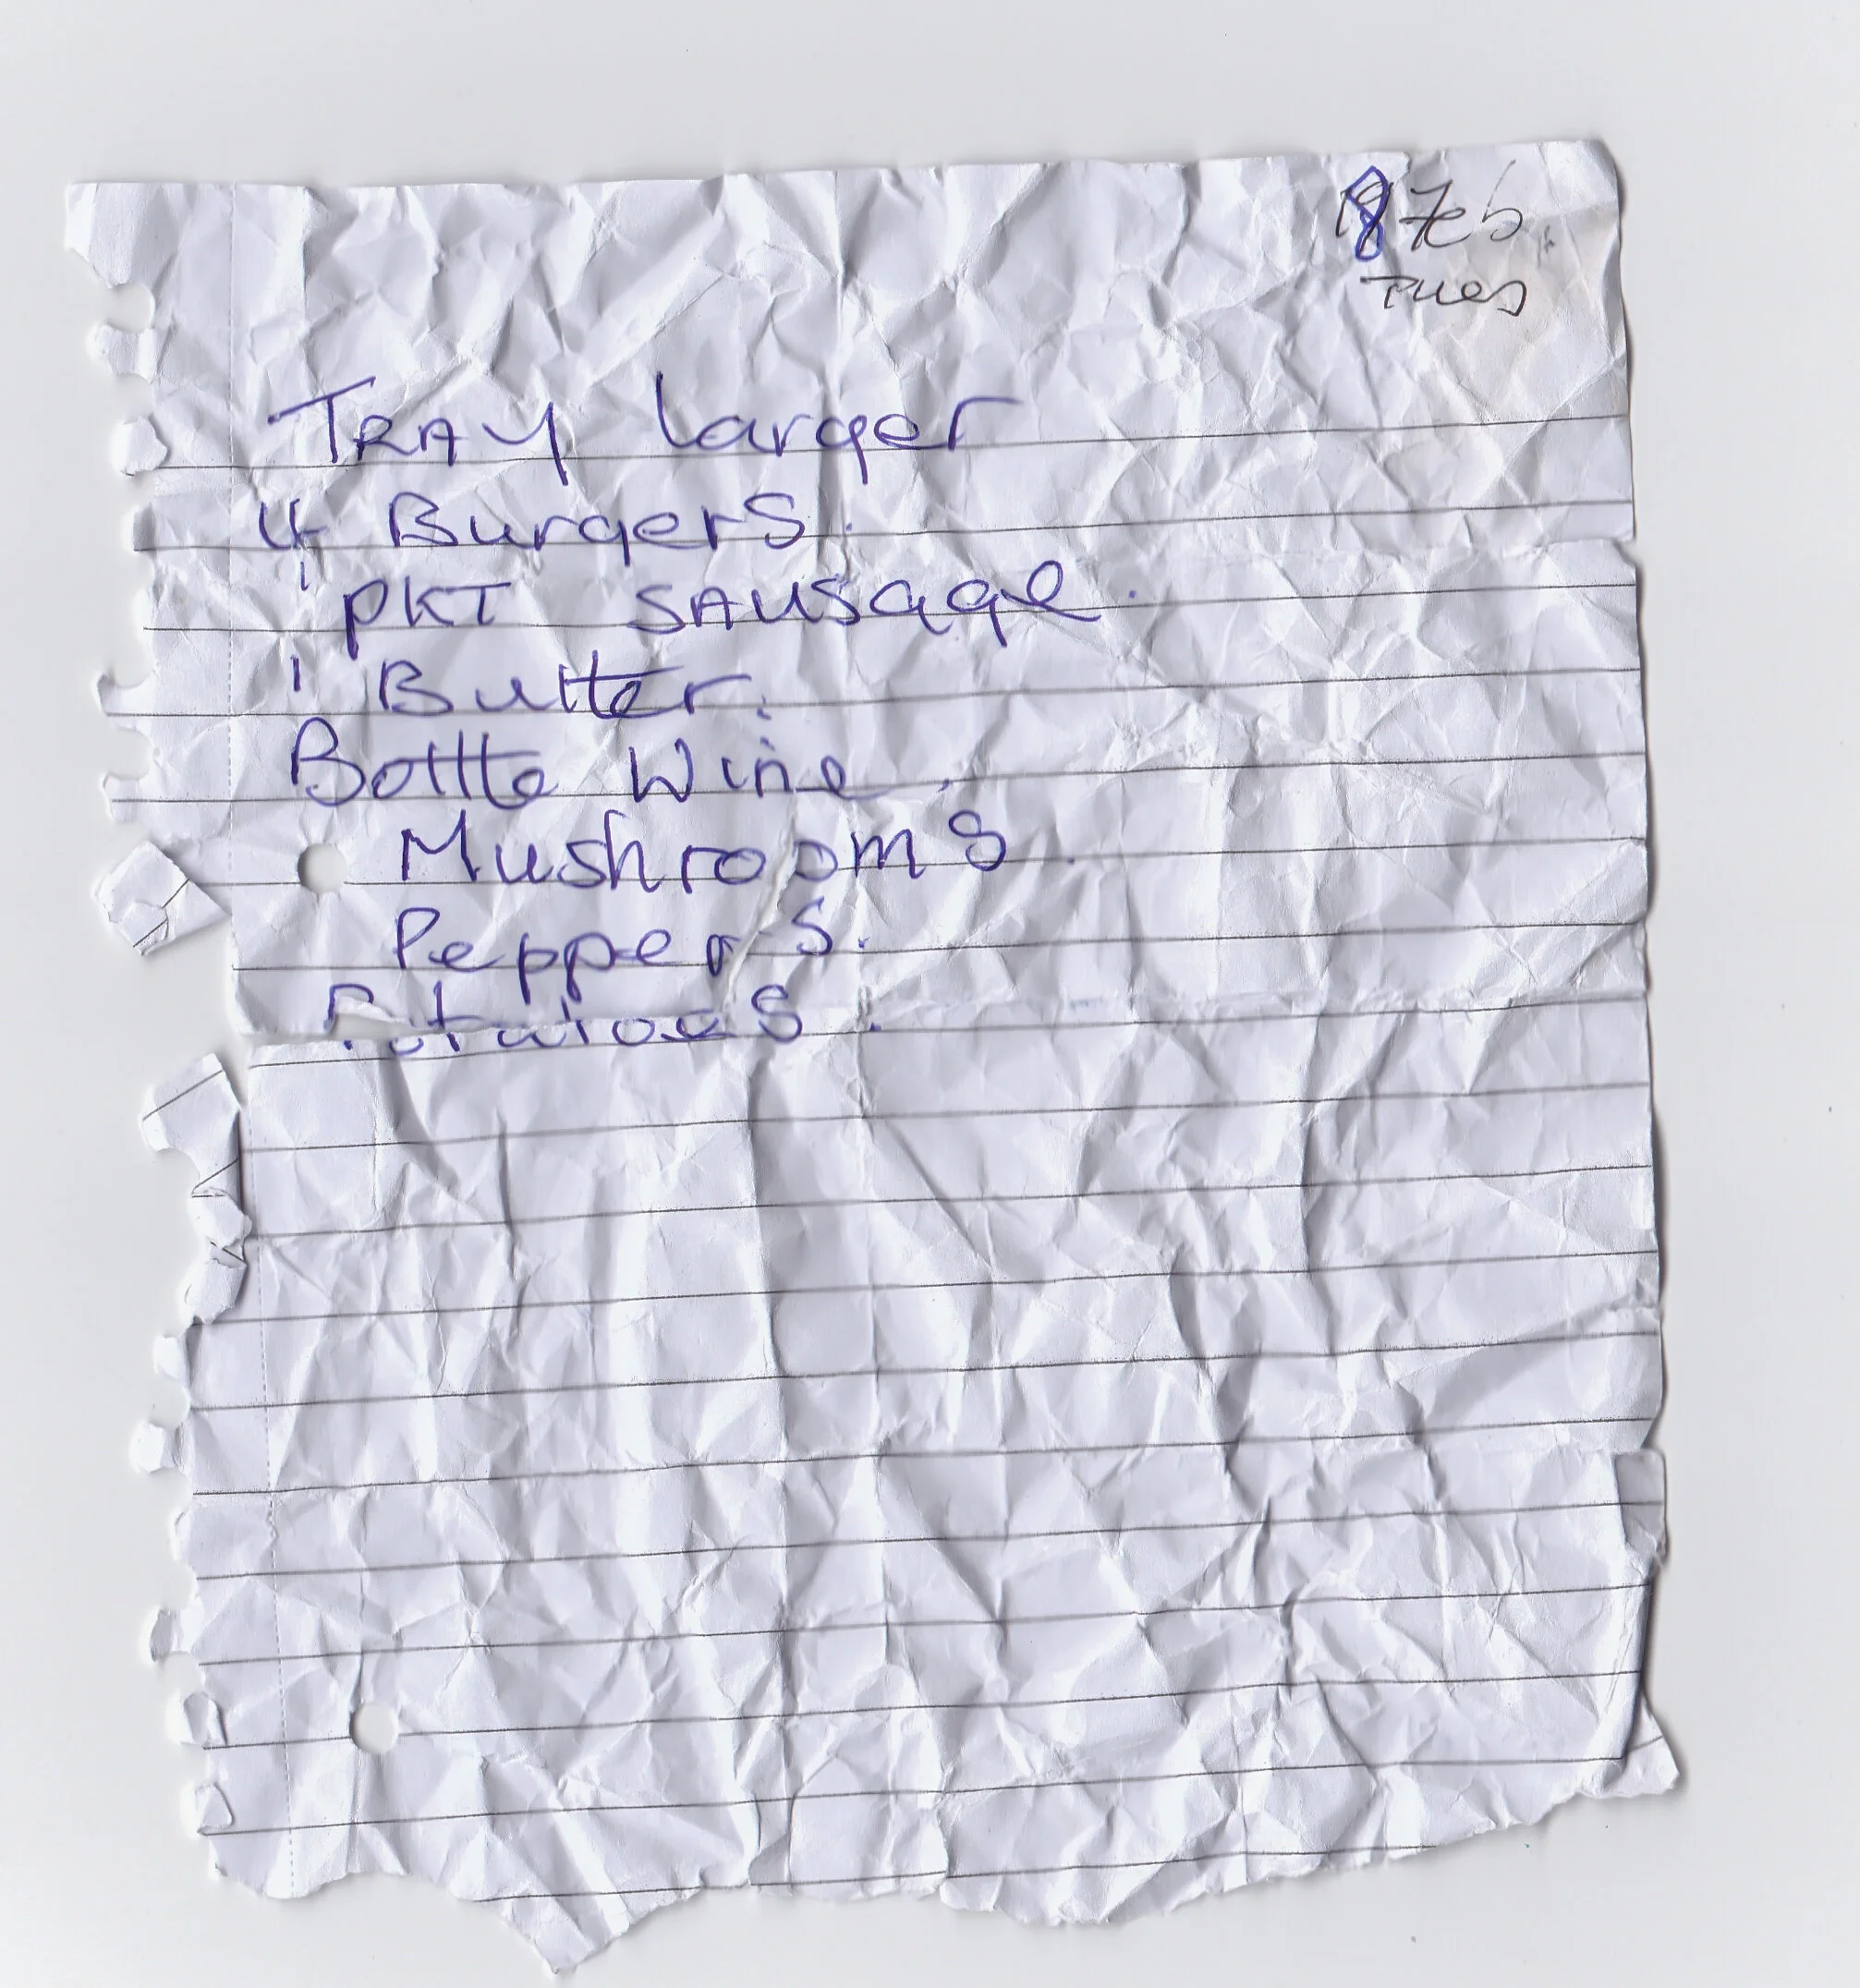 8 Feb.
Tues
TRAY Larger
4 Burgers.
1 PKT SAUSage.
1 Butter.
Bottle Wine.
Mushrooms.
Peppers.
Potatoes.